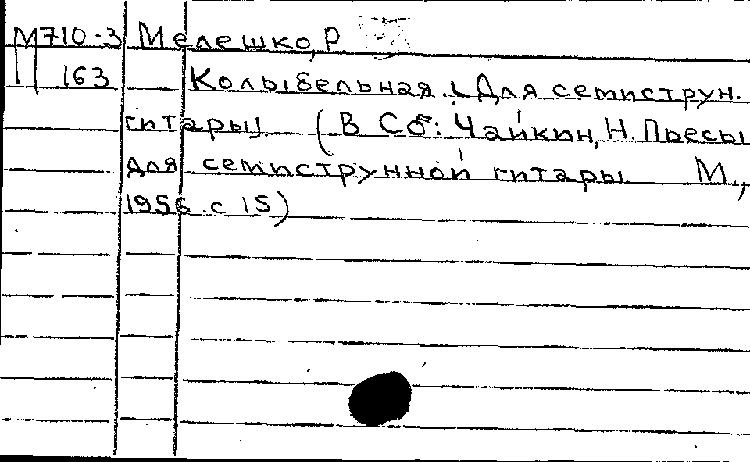 М710-3 Мелешко, Р.
163 Колыбельная. [Для семиструн.
гитары] (В Сб: Чайкин, Н. Пьесы
для семиструнной гитары М.,
1956 с 15)